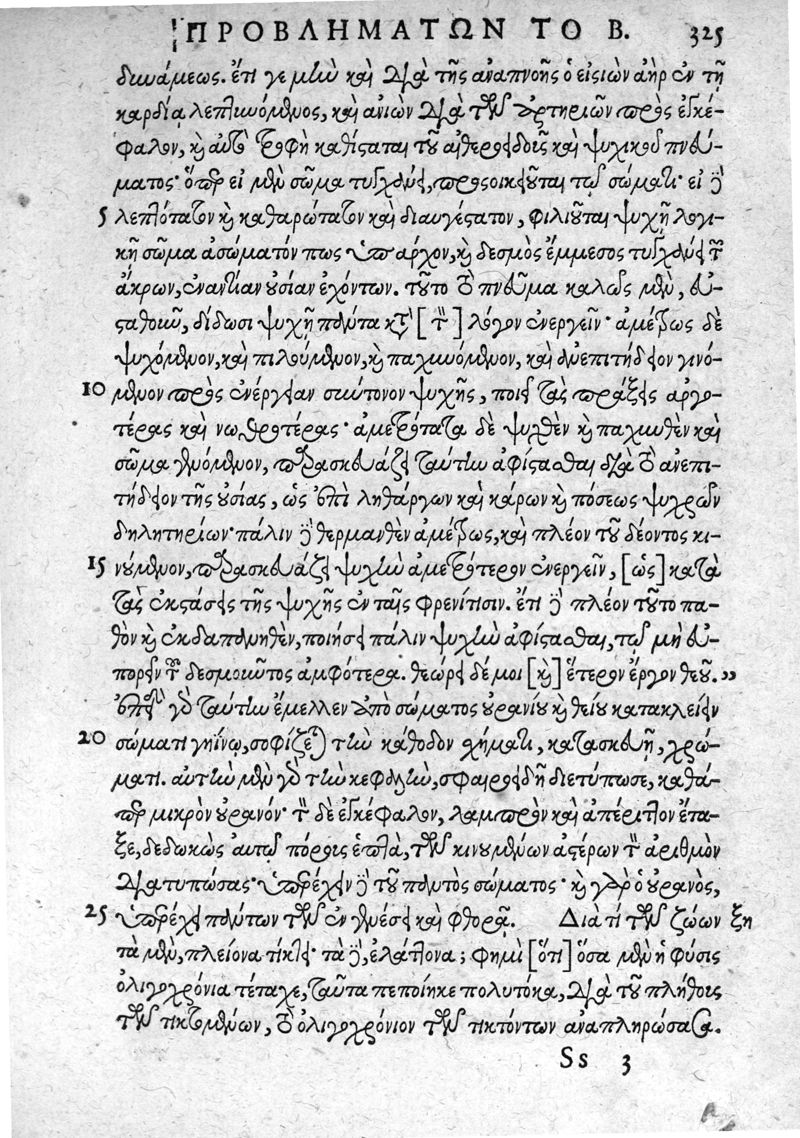 ΠΡΟΒΛΗΜΑΤΩΝ ΤΟ Β. 325
δυνάμεως. ἔτι γε μὴν καὶ διὰ τῆς ἀναπνοῆς ὁ εἰσιὼν ἀὴρ ἐν τῇ
καρδίᾳ λεπτυνόμενος, καὶ ἀνιὼν διὰ τῶν ἀρτηριῶν πρὸς ἐγκέ-
φαλον, καὶ αὐτὸς τροφὴ καθίσταται τοῦ αἰθεροειδοῦς καὶ ψυχικοῦ πνεύ-
ματος· ὅπερ εἰ μὲν σῶμα τυγχάνει, προσοικειοῦται τῷ σώματι· εἰ δὲ
5 λεπτότατον καὶ καθαρώτατον καὶ διαυγέστατον, φιλιοῦται ψυχῇ λογι-
κῇ σῶμα ἀσώματόν πως ὑπάρχον, καὶ δεσμὸς ἔμμεσος τυγχάνει τῶν
ἄκρων, ἐναντίαν οὐσίαν ἐχόντων. τοῦτο τὸ πνεῦμα καλῶς μὲν, εὐ-
σταθοῦν, δίδωσι ψυχῇ πάντα κατὰ [τὸν] λόγον ἐνεργεῖν· ἀμέτρως δὲ
ψυχόμενον, καὶ πιλούμενον, καὶ παχυνόμενον, καὶ ἀνεπιτήδειον γινό-
10 μενον πρὸς ἐνέργειαν σύντονον ψυχῆς, ποιεῖ τὰς πράξεις ἀργο-
τέρας καὶ νωθροτέρας· ἀμετρότατα δὲ ψυχθὲν καὶ παχυνθὲν καὶ
σῶμα γενόμενον, παρασκευάζει ταύτην ἀφίστασθαι διὰ τὸ ἀνεπι-
τήδειον τῆς οὐσίας, ὡς ἐπὶ ληθάργων καὶ κάρων καὶ πόσεως ψυχρῶν
δηλητηρίων· πάλιν δὲ θερμανθὲν ἀμέτρως, καὶ πλέον τοῦ δέοντος κι-
15 νούμενον, παρασκευάζει ψυχὴν ἀμετρότερον ἐνεργεῖν, [ὡς] κατὰ
τὰς ἐκστάσεις τῆς ψυχῆς ἐν ταῖς φρενίτισιν. ἔτι δὲ πλέον τοῦτο πα-
θὸν καὶ ἐκδαπανηθὲν, ποιήσει πάλιν ψυχὴν ἀφίστασθαι, τῷ μὴ εὐ-
πορεῖν τοῦ δεσμοῦντος ἀμφότερα. θεώρει δέ μοι [καὶ] ἕτερον ἔργον θεοῦ.”
ἐπεὶ γὰρ ταύτην ἔμελλεν ἀπὸ σώματος οὐρανίου καὶ θείου κατακλείειν
20 σώματι γηΐνῳ, σοφίζεται τὴν κάθοδον σχήματι, κατασκευῇ, χρώ-
ματι. αὐτὴν μὲν γὰρ τὴν κεφαλὴν, σφαιροειδῆ διετύπωσε, καθά-
περ μικρὸν οὐρανόν· τὸν δὲ ἐγκέφαλον, λαμπρὸν καὶ ἀπέριττον ἔτα-
ξε, δεδωκὼς αὐτῷ πόροις ἑπτὰ, τῶν κινουμένων ἀστέρων τὸν ἀριθμὸν
διατυπώσας· ὑπερέχειν δὲ τοῦ παντὸς σώματος· καὶ γὰρ ὁ οὐρανὸς,
25 ὑπερέχει πάντων τῶν ἐν γενέσει καὶ φθορᾷ. Διὰ τί τῶν ζώων ξη
τὰ μὲν, πλείονα τίκτει· τὰ δὲ, ἐλάττονα; φημὶ [ὅτι] ὅσα μὲν ἡ φύσις
ὀλιγοχρόνια τέταχε, ταῦτα πεποίηκε πολυτόκα, διὰ τοῦ πλήθους
τῶν τικτομένων, τὸ ὀλιγοχρόνιον τῶν τικτόντων ἀναπληρώσασα.
Ss 3